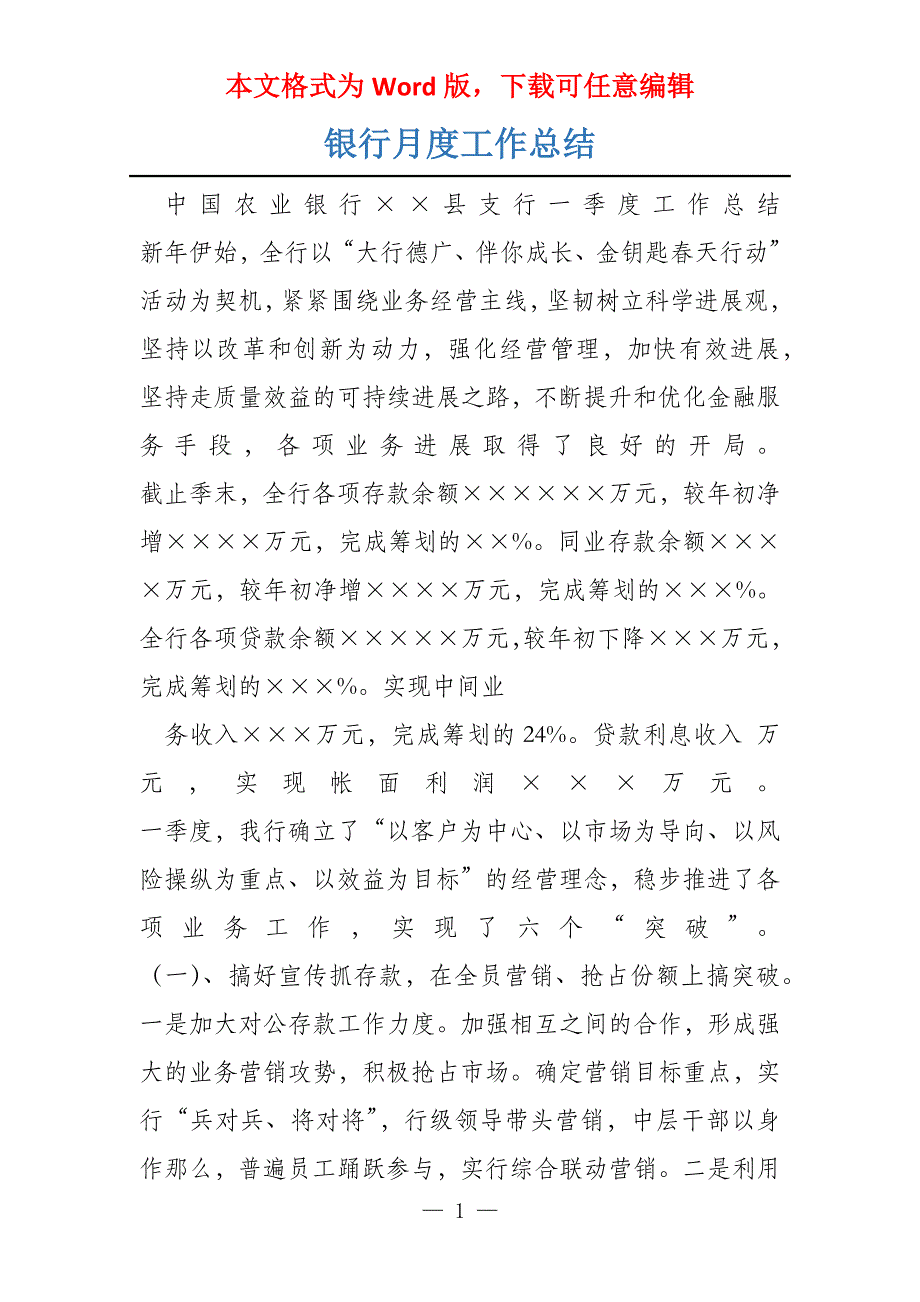 本文格式为 Word 版，下载可任意编辑
银行月度工作总结
中国农业银行××县支行一季度工作总结
新年伊始，全行以“大行德广、伴你成长、金钥匙春天行动”
活动为契机，紧紧围绕业务经营主线，坚韧树立科学进展观，
坚持以改革和创新为动力，强化经营管理，加快有效进展，
坚持走质量效益的可持续进展之路，不断提升和优化金融服
务手段，各项业务进展取得了良好的开局。
截止季末，全行各项存款余额××××××万元，较年初净
增××××万元，完成筹划的××%。同业存款余额×××
×万元，较年初净增××××万元，完成筹划的×××%。
全行各项贷款余额×××××万元，较年初下降×××万元，
完成筹划的×××%。实现中间业
务收入×××万元，完成筹划的 24%。贷款利息收入 万
元，实现帐面利润×××万元。
一季度，我行确立了“以客户为中心、以市场为导向、以风
险操纵为重点、以效益为目标”的经营理念，稳步推进了各
项业务工作，实现了六个“突破”。
（一）、搞好宣传抓存款，在全员营销、抢占份额上搞突破。
一是加大对公存款工作力度。加强相互之间的合作，形成强
大的业务营销攻势，积极抢占市场。确定营销目标重点，实
行“兵对兵、将对将”，行级领导带头营销，中层干部以身
作那么，普遍员工踊跃参与，实行综合联动营销。二是利用
— 1 —